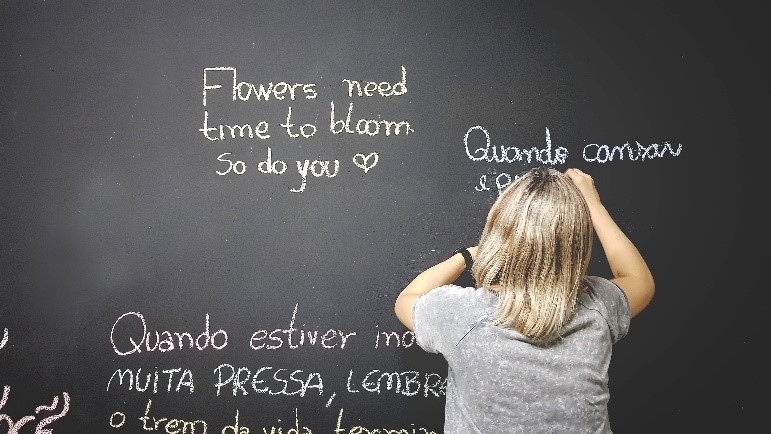 Flowers need
time to bloom
So do you ♡
Quando cansar
Quando estiver
MUITA PRESSA,
o trem da vida